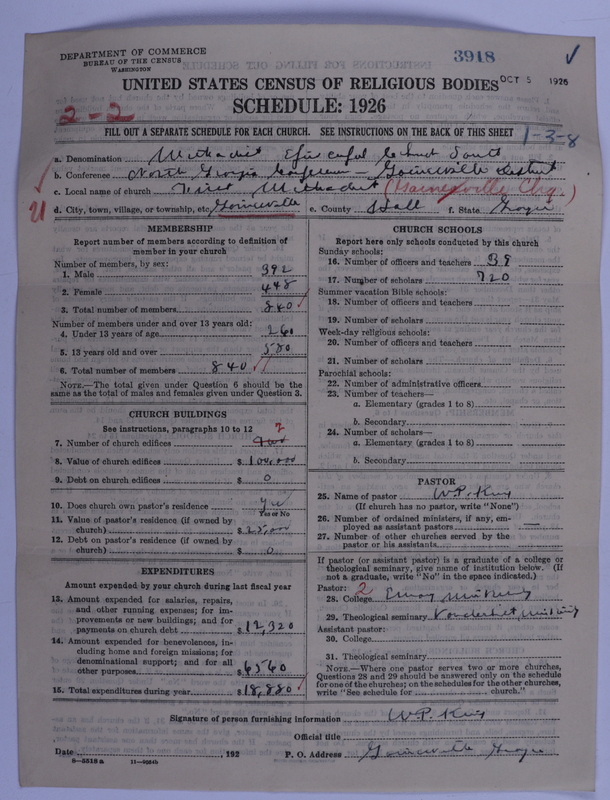 DEPARTMENT OF COMMERCE
BUREAU OF THE CENSUS
WASHINGTON
3918
UNITED STATES CENSUS OF RELIGIOUS BODIES
OCT 5 1926
SCHEDULE: 1926
2-2
FILL OUT A SEPARATE SCHEDULE FOR EACH CHURCH. SEE INSTRUCTIONS ON THE BACK OF THIS SHEET
1-3-8
a. Denomination Methodist Episcopal Church South
b. Conference North Georgia Conference - Gainesville District
c. Local name of church First Methodist (Gainesville Chg.)
21
d. City, town, village, or township, etc. Gainesville e. County Hall f. State Georgia
MEMBERSHIP
Report number of members according to definition of
member in your church
Number of members, by sex:
1. Male 392
2. Female 448
3. Total number of members 840
Number of members under and over 13 years old:
4. Under 13 years of age 260
5. 13 years old and over 580
6. Total number of members 840
NOTE.—The total given under Question 6 should be
same as the total of males and females given under Question 3.
CHURCH BUILDINGS
See instructions, paragraphs 10 to 12
7. Number of church edifices
8. Value of church edifices $
9. Debt on church edifices $ 0
10. Does church own pastor's residence Yes
Yes or No
11. Value of pastor's residence (if owned by
church) $ 25,000
12. Debt on pastor's residence (if owned by
church) $ 0
EXPENDITURES
Amount expended by your church during last fiscal year
13. Amount expended for salaries, repairs,
and other running expenses; for im-
provements or new buildings; and for
payments on church debt $ 12,320
14. Amount expended for benevolences, in-
cluding home and foreign missions; for
denominational support; and for all
other purposes $ 6560
15. Total expenditures during year $ 18,880
CHURCH SCHOOLS
Report here only schools conducted by this church
Sunday schools:
16. Number of officers and teachers 39
17. Number of scholars 720
Summer vacation Bible schools:
18. Number of officers and teachers
19. Number of scholars
Week-day religious schools:
20. Number of officers and teachers
21. Number of scholars
Parochial schools:
22. Number of administrative officers
23. Number of teachers—
a. Elementary (grades 1 to 8)
b. Secondary
24. Number of scholars—
a. Elementary (grades 1 to 8)
b. Secondary
PASTOR
25. Name of pastor W.P. King
(If church has no pastor, write "None")
26. Number of ordained ministers, if any, em-
ployed as assistant pastors —
27. Number of other churches served by the
pastor or his assistants
If pastor (or assistant pastor) is a graduate of a college or
theological seminary, give name of institution below. (If
not a graduate, write "No" in the space indicated.)
Pastor: 2
28. College Emory University
29. Theological seminary Vanderbilt University
Assistant pastor:
30. College
31. Theological seminary
NOTE.—Where one pastor serves two or more churches,
Questions 28 and 29 should be answered only on the schedule
for one of the churches; on the schedules for the other churches,
write "See schedule for church."
Signature of person furnishing information W.P. King
Official title
Date , 192 P. O. Address Gainesville Georgia
8-5518 a